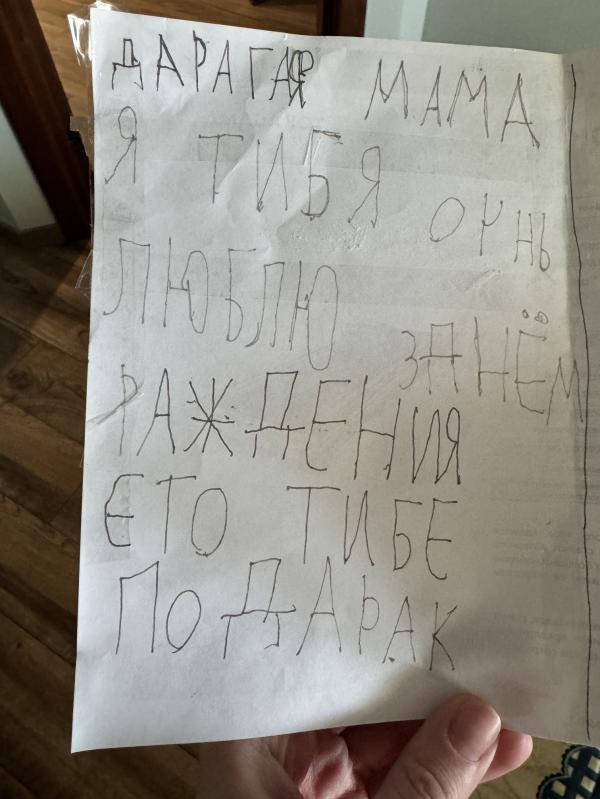 ДАРАГАЯ МАМА
Я ТИБЯ ОЧНЬ
ЛЮБЛЮ ЗДНЁМ
РАЖДЕНИЯ
ЄТО ТИБЕ
ПОДАРАК